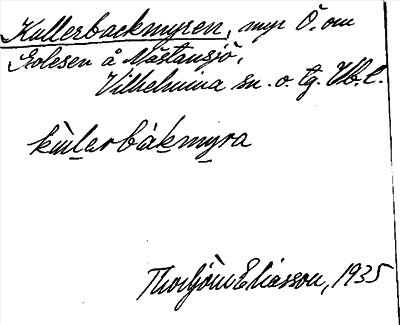 Kullerbackmyren, myr Ö. om
Eolesen å Nästansjö,
Vilhelmina sn. o. tg. Vb. l.
kùl̲erbák̲my̲ra
Thorbjörn Eliasson, 1935